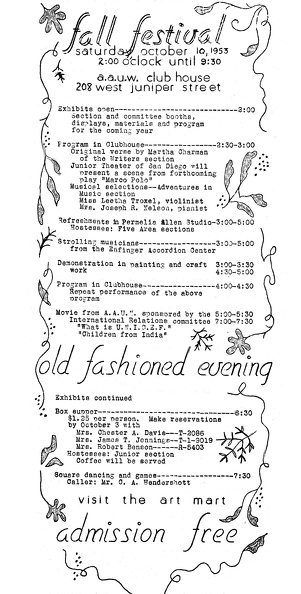 fall festival
saturday october 10, 1953
2:00 o'clock until 9:30
a.a.u.w. club house
208 west juniper street
Exhibits open----------------------------2:00
Section and committee booths,
displays, materials and program
for the coming year
Program in Clubhouse----------------2:30-3:00
Original verse by Martha Charman
of the Writers section
Junior Theater of San Diego will
present a scene from forthcoming
play "Marco Polo"
Musical selections--Adventures in
Music section
Miss Leetha Troxel, violinist
Mrs. Joseph R. Yelson, pianist
Refreshments in Permelia Allen Studio-3:00-5:00
Hostesses: Five Area sections
Strolling musicians-----------------3:00-5:00
from the Enfinger Accordion Center
Demonstration in painting and craft 3:00-3:30
work 4:30-5:00
Program in Clubhouse----------------4:00-4:30
Repeat performance of the above
program
Movie from A.A.U.". sponsored by the 5:00-5:30
International Relations committee 7:00-7:30
"What is U.N.I.C.E.F."
"Children from India"
old fashioned evening
Exhibits continued
Box supper-----------------------------6:30
$1.25 per person. Make reservations
by October 3 with
Mrs. Chester A. Davis---T-2086
Mrs. James T. Jennings---T-1-3019
Mrs. Robert Benson-----R-5403
Hostesses: Junior section
Coffee will be served
Square dancing and games---------------7:30
Caller: Mr. C. A. Hendershott
visit the art mart
admission free